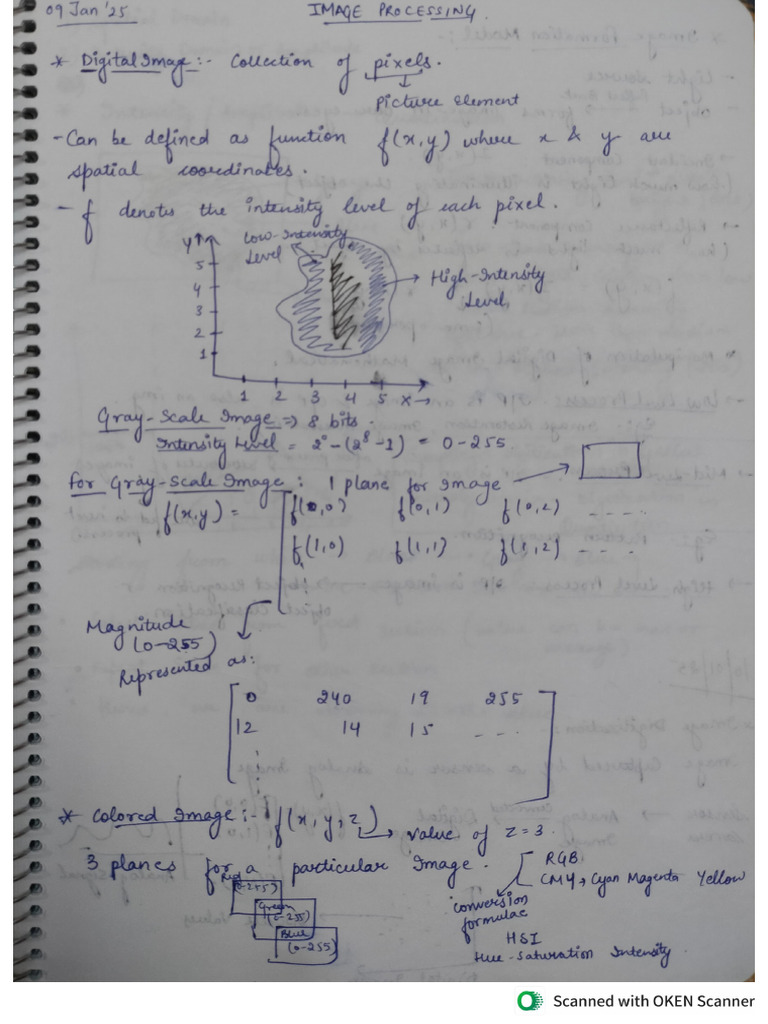 09 Jan '25
IMAGE PROCESSING.
* Digital Image :- Collection of pixels.
picture element
- Can be defined as function f(x,y) where x & y are
spatial coordinates.
- f denotes the intensity level of each pixel.
y↑
Low-Intensity
Level
5
4
3
2
1
High-Intensity
Level
1 2 3 4 5 x→
Gray-Scale Image => 8 bits.
Intensity Level = 2⁰-(2⁸-1) = 0-255.
For Gray-Scale Image : 1 plane for image
f(x,y) = f(0,0) f(0,1) f(0,2) - - - -
f(1,0) f(1,1) f(1,2) - - - -
Magnitude
(0-255)
Represented as:
0 240 19 255
12 14 15 - - - .
* Colored Image :- f(x, y, z) → value of z = 3.
3 planes for a particular Image.
Red
(0-255)
Green
(0-255)
Blue
(0-255)
RGB
CMY → Cyan Magenta Yellow
conversion
formulae
HSI
Hue-Saturation Intensity
Scanned with OKEN Scanner